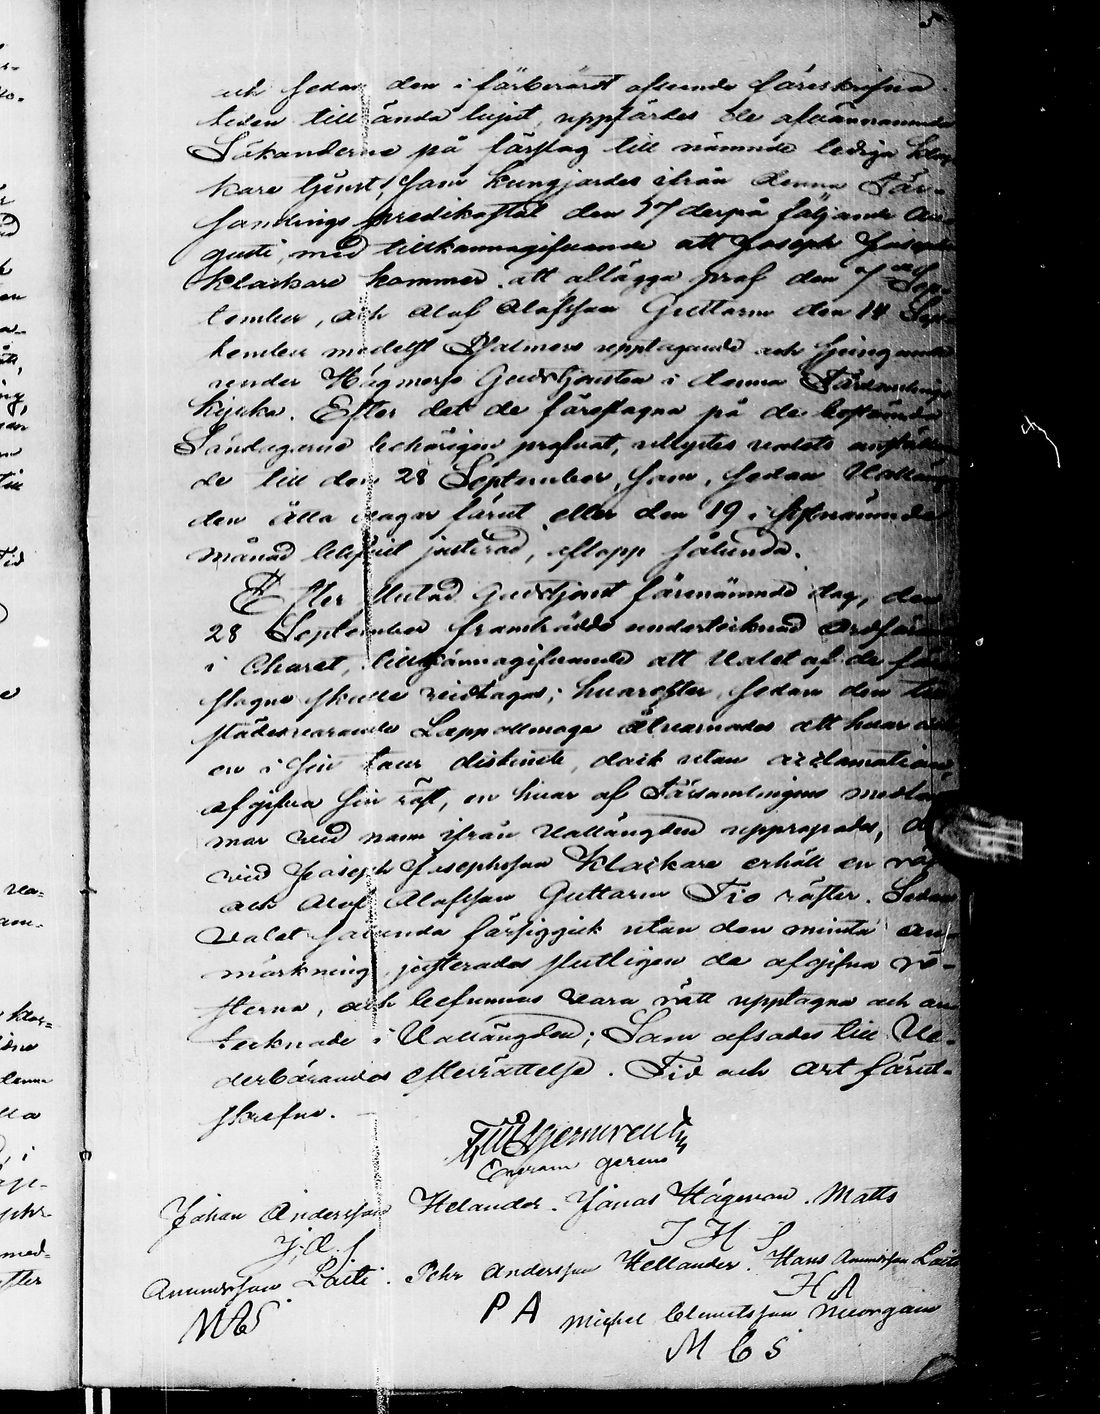 5
och sedan den i förberördt afseende föreskrifna
tiden till ända lupit, uppfördes de ofvannämnde
Sökanderne på förslag till nämnde lediga Kloc-
kare tjenst, som kungjordes ifrån denna För-
samlings predikostol den 17 derpå följande Au-
gusti, med tillkännagifvande att Joseph Josephs
Klockare kommer att aflägga prof den 7 Sep-
tember, och Olof Olofsson Guttorm den 14 Sep-
tember medelst Psalmers upptagande och sjungande
under Högmesso Gudstjensten i denna Församlings
kyrka. Efter det de föreslagna på de bestämda
Söndagarne behörigen profvat, utlystes valets anställan-
de till den 28 September, som, sedan Vallängden
den åtta dagar förut eller den 19 i sistnämnde
månad blifvit justerad, aflopp sålunda.
Efter slutad Gudstjenst förenämnde dag, den
28 September framträdde undertecknad Ordförande
i Choret, tillkännagifvande att Valet af de före-
slagne skulle vidtagas; hvarefter, sedan den till
städesvarande Lappallmoge åtvarnades att hvar och
en i sin tour distincte, dock utan acclamation
afgifva sin röst, en hvar af Församlingens medlem-
mar vid namn ifrån Vallängden uppropades, der
vid Joseph Josephsson Klockare erhöll en röst
och Olof Olofsson Guttorm Tio röster. Sedan
Valet sålunda försiggick utan den minsta an-
märkning, justerades slutligen de afgifna rö-
sterna, och befunnos vara rätt upptagna och an-
tecknade i Vallängden; Som afsades till Ve-
derbörandes efterrättelse. Tid och ort förut-
skrefne.
Johan Andersson Helander. Jonas Högman. Matts
J. A. S J H S
Amundsson Laiti. Pehr Andersson Hellander. Hans Amundsson Laiti
M A S P A H A
Michel Clemetsson Nuorgam
M C S